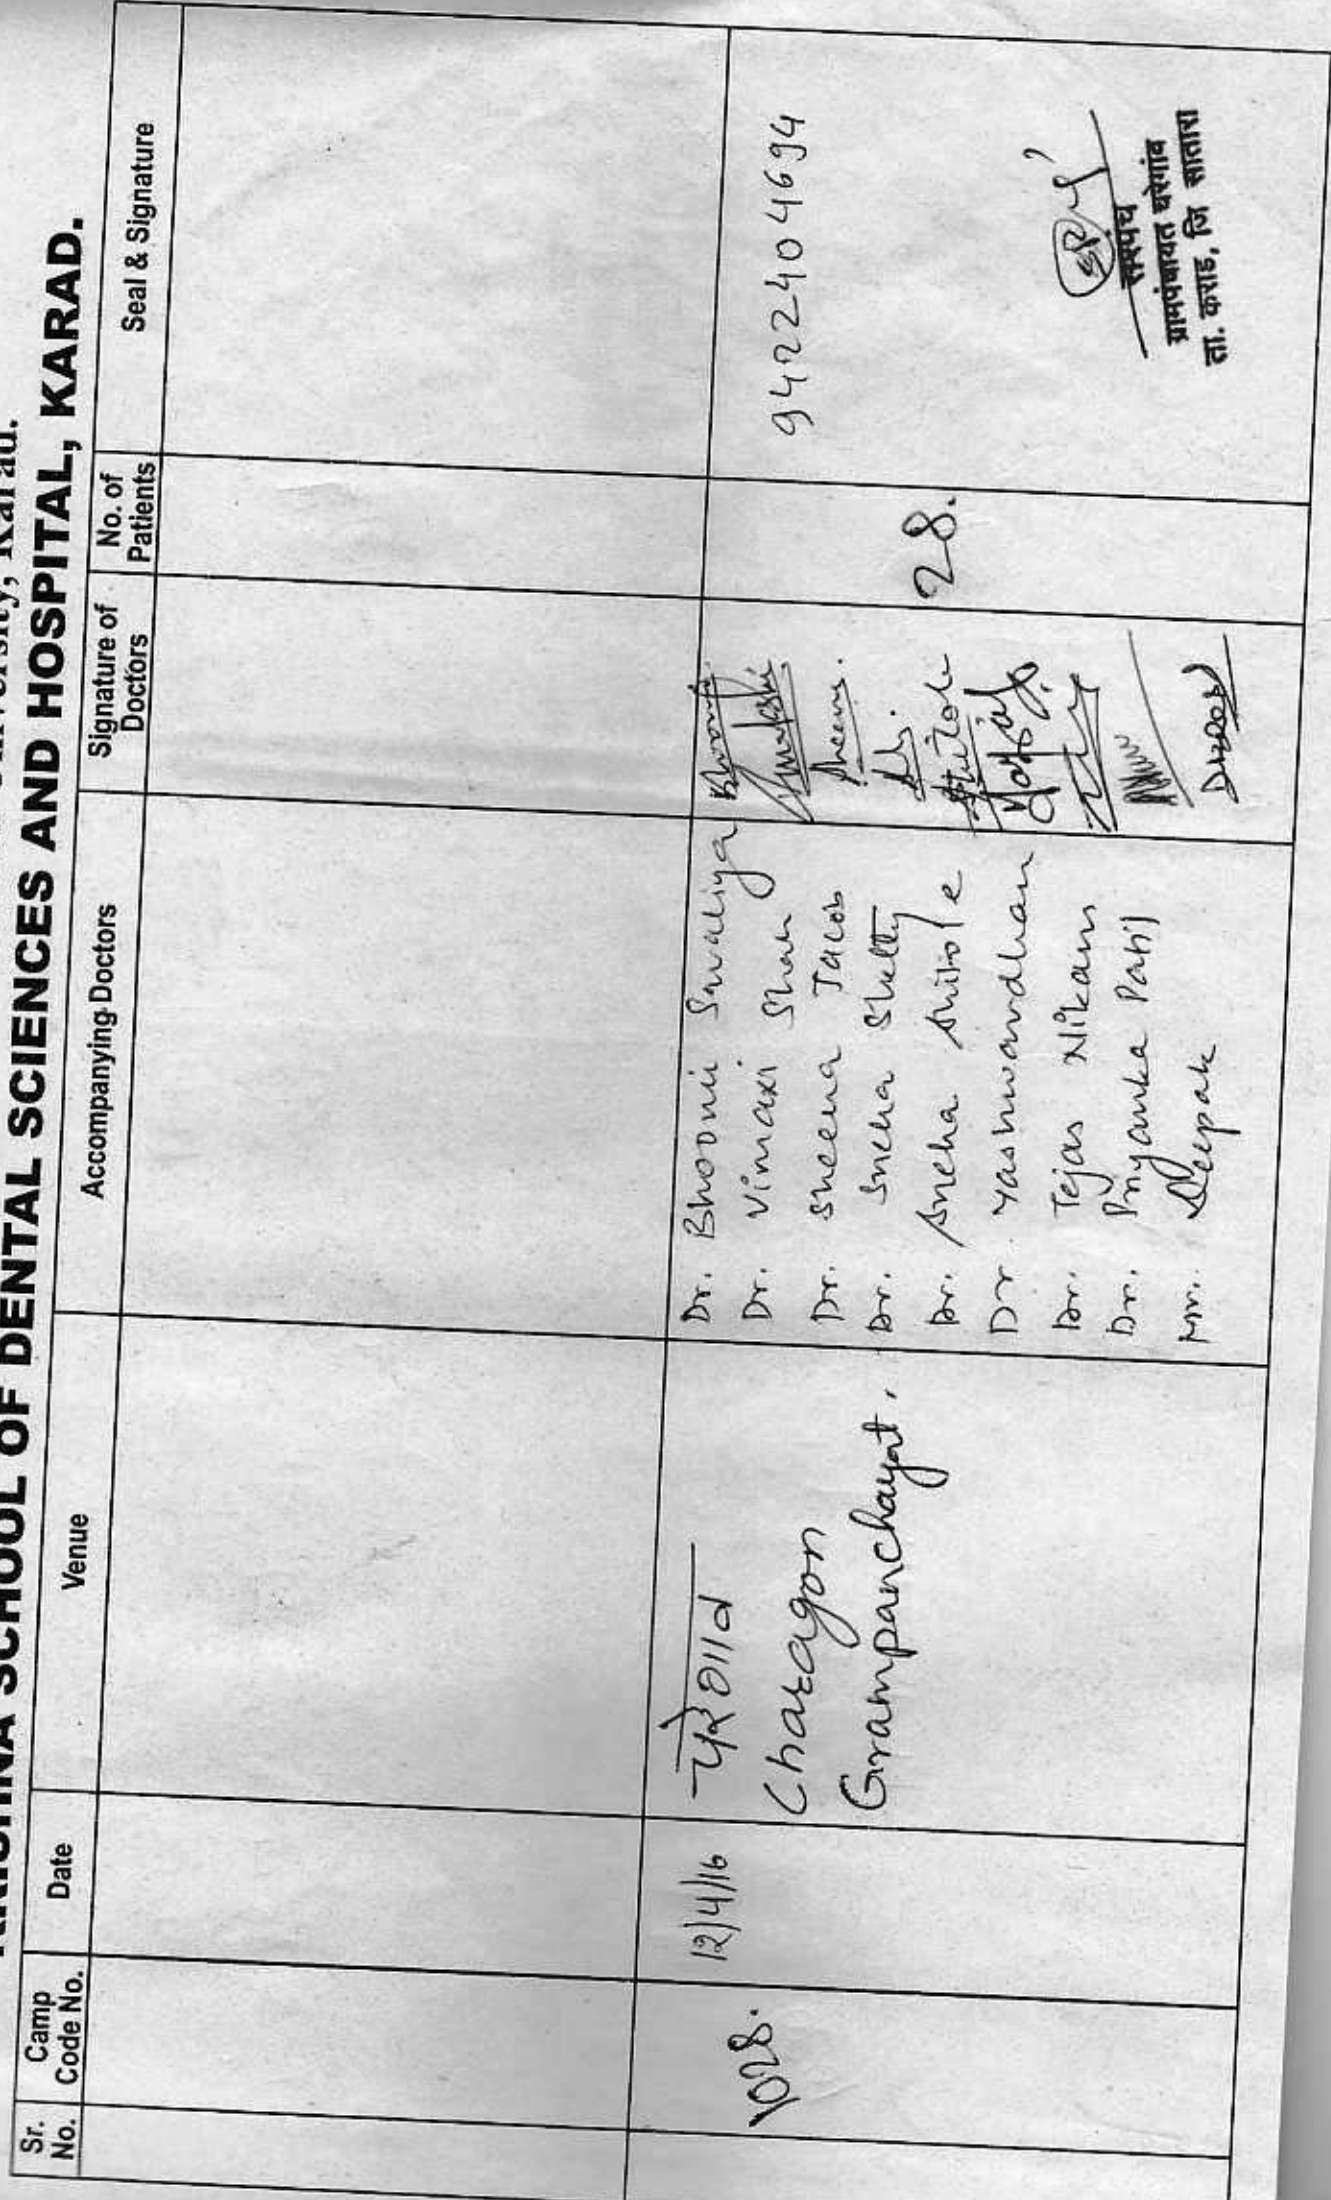 University, Karad.
SCHOOL OF DENTAL SCIENCES AND HOSPITAL, KARAD.
Sr. No.
Camp Code No.
Date
Venue
Accompanying Doctors
Signature of Doctors
No. of Patients
Seal & Signature
1028.
12/4/16
चरेगाव
Charagon
Grampanchayat.
Dr. Bhoomi Savaliya
Dr. Vimaxi Shah
Dr. Sheena Jacob
Dr. Sneha Shetty
Dr. Sneha Shitole
Dr. Yashwardhan
Dr. Tejas Nikam
Dr. Priyanka Patil
Mr. Deepak
28.
9422404694
सरपंच
ग्रामपंचायत चरेगांव
ता. कराड, जि सातारा